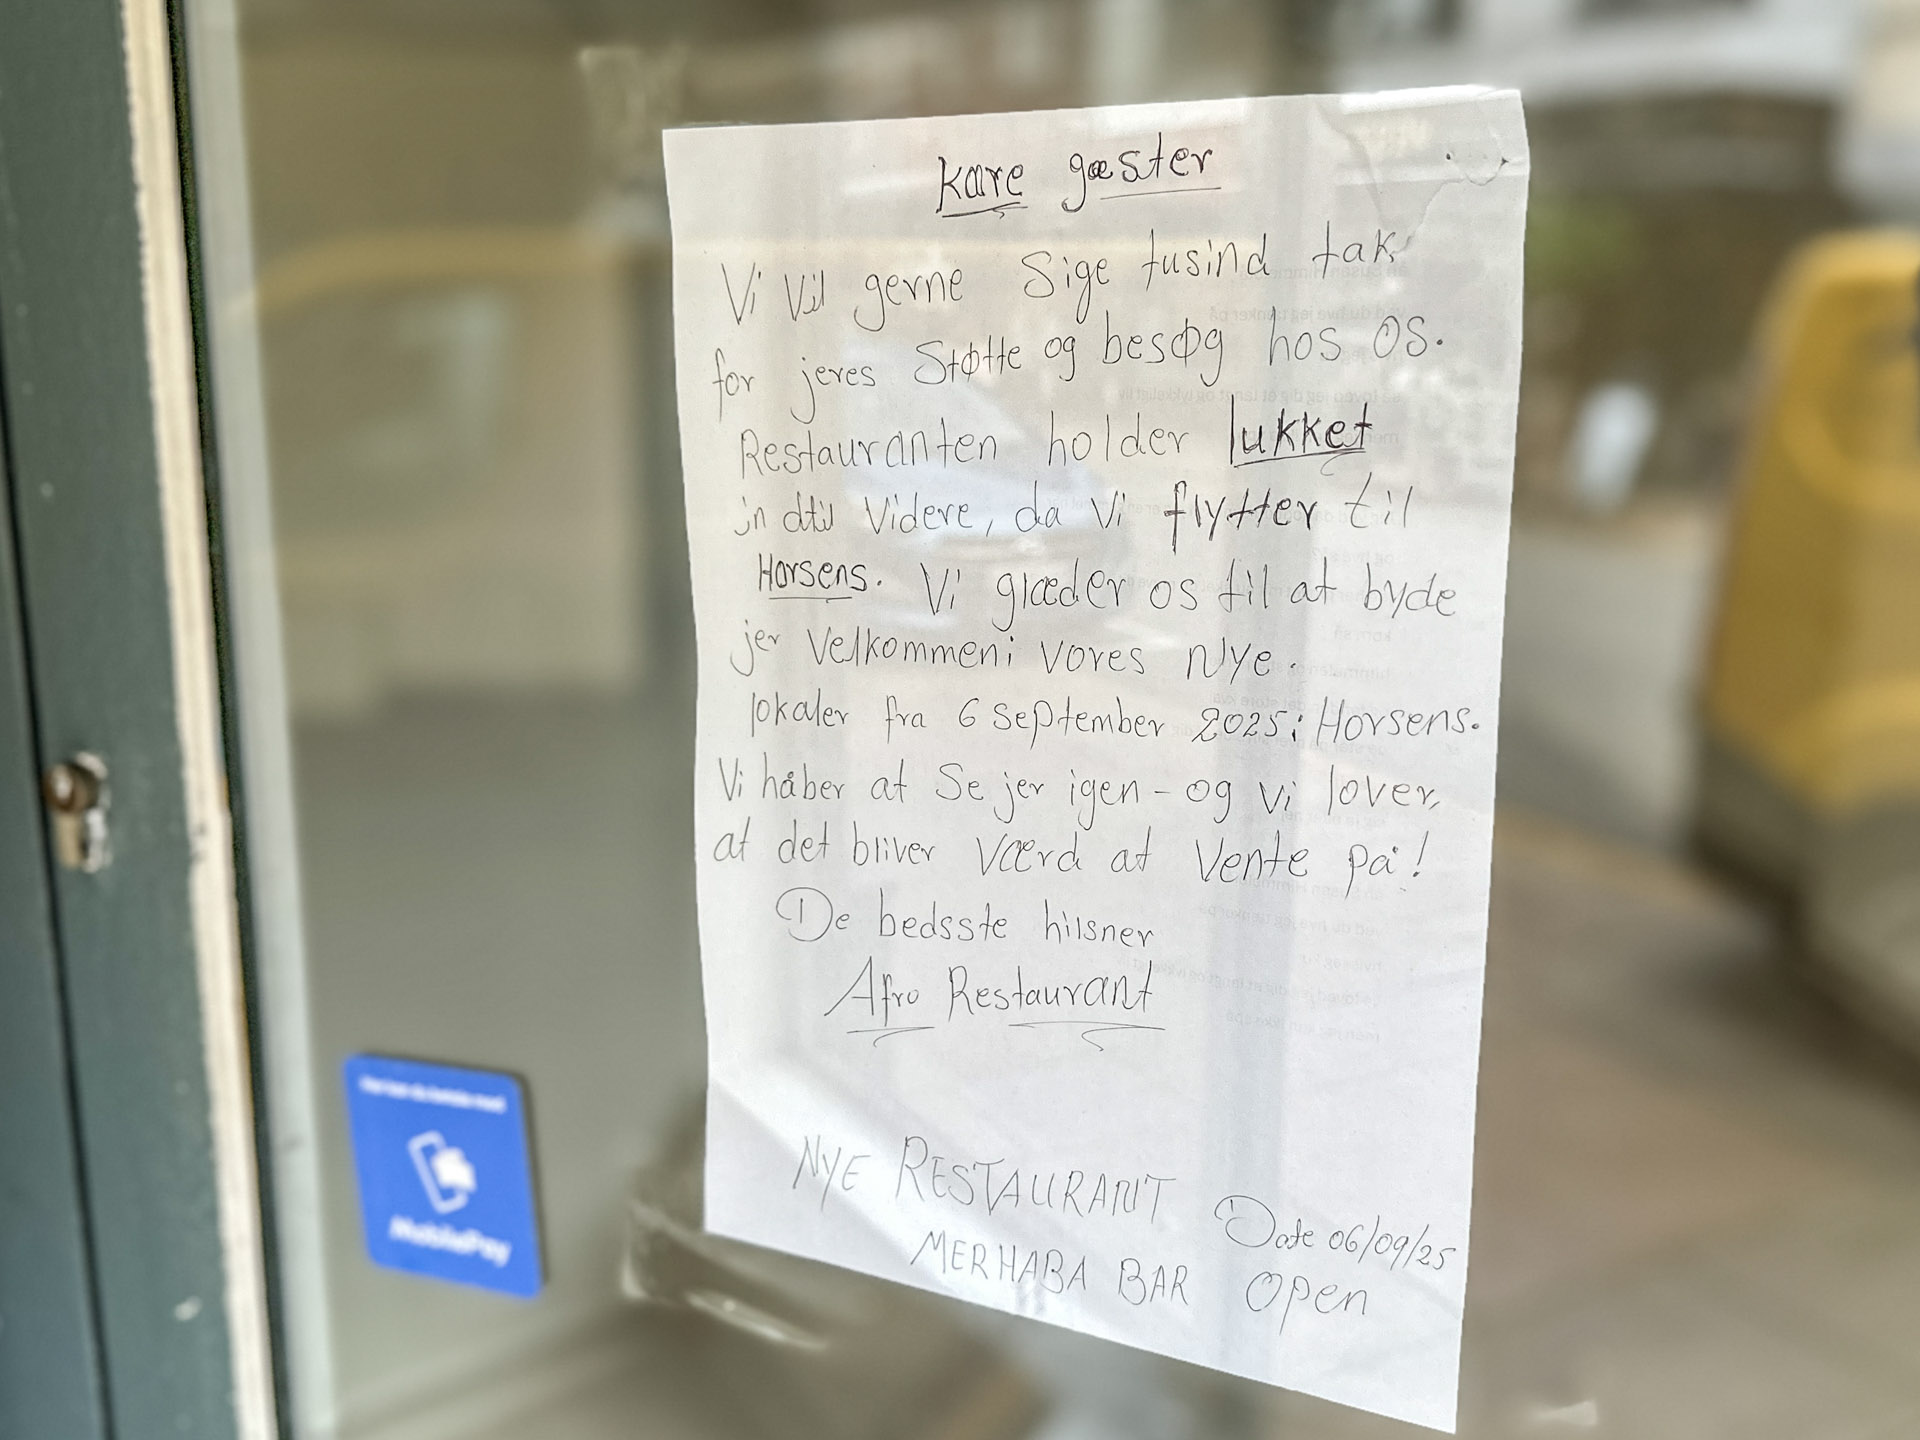 kære gæster
Vi Vil gerne Sige tusind tak
for jeres Støtte og besøg hos OS.
Restauranten holder lukket
indtil Videre, da Vi flytter til
Horsens. Vi glæder os til at byde
jer Velkommen i vores Nye.
lokaler fra 6 September 2025 i Horsens.
Vi håber at Se jer igen - og vi lover,
at det bliver Værd at Vente på!
De bedsste hilsner
Afro Restaurant
NYE RESTAURANT Date 06/09/25
MERHABA BAR Open
MobilePay